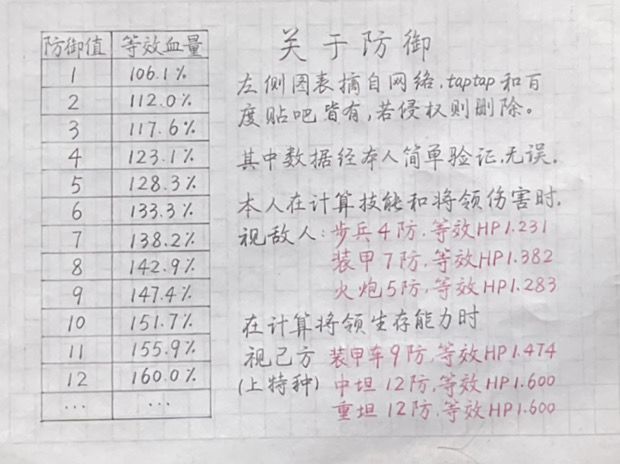 防御值 等效血量
1 106.1%
2 112.0%
3 117.6%
4 123.1%
5 128.3%
6 133.3%
7 138.2%
8 142.9%
9 147.4%
10 151.7%
11 155.9%
12 160.0%
... ...
关于防御
左侧图表摘自网络.taptap和百
度贴吧皆有,若侵权则删除。
其中数据经本人简单验证,无误.
本人在计算技能和将领伤害时.
视敌人:步兵4防.等效HP1.231
装甲7防.等效HP1.382
火炮5防.等效HP1.283
在计算将领生存能力时
视己方 装甲车9防,等效HP1.474
(上特种) 中坦12防,等效HP1.600
重坦12防,等效HP1.600